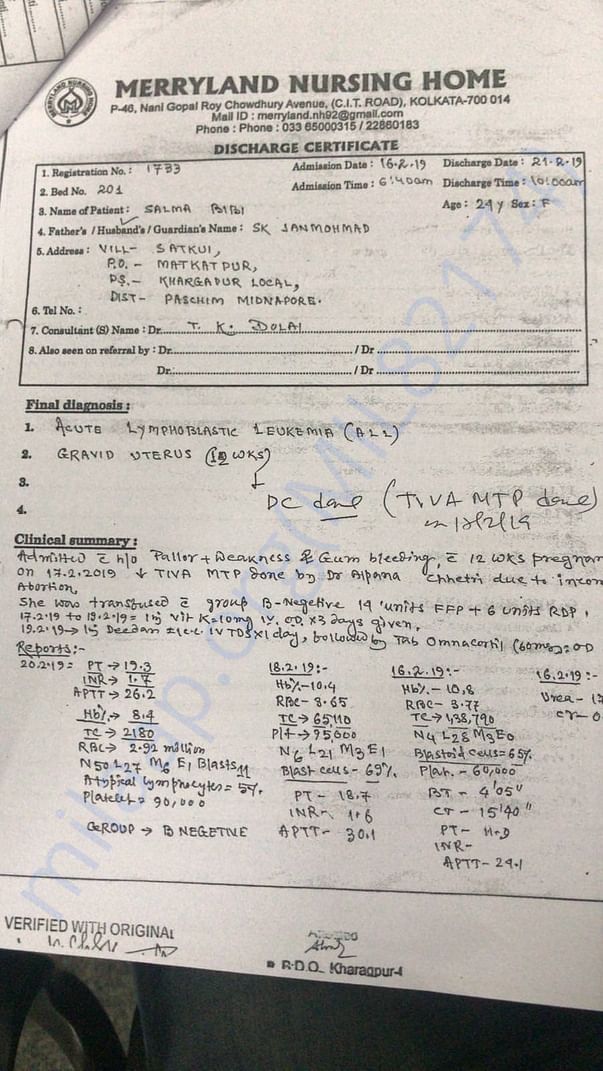 MERRYLAND NURSING HOME
P-46, Nani Gopal Roy Chowdhury Avenue, (C.I.T. ROAD), KOLKATA-700 014
Mail ID : merryland.nh92@gmail.com
Phone : Phone : 033 65000315 / 22860183
DISCHARGE CERTIFICATE
1. Registration No. : 1733 Admission Date : 16.2.19 Discharge Date : 21.2.19
2. Bed No. 201 Admission Time : 6:40am Discharge Time : 10:00am
3. Name of Patient : SALMA BIBI Age : 24 y Sex : F
4. Father's / Husband's / Guardian's Name : SK JANMOHMAD
5. Address : VILL- SATKUI,
P.O. - MATKATPUR,
P.S. - KHARGAPUR LOCAL,
DIST- PASCHIM MIDNAPORE.
6. Tel No. :
7. Consultant (S) Name : Dr. T. K. DOLAI
8. Also seen on referral by : Dr. / Dr
Dr. / Dr
Final diagnosis :
1. ACUTE LYMPHOBLASTIC LEUKEMIA (ALL)
2. GRAVID UTERUS (12 WKS)
3.
4. DC done (TIVA MTP done)
Clinical summary :
Admitted c h/o Pallor + Weakness & Gum bleeding, c 12 wks pregnan
on 17.2.2019 ↓ TIVA MTP done by Dr Alpana Chhetri due to incom
Abortion,
She was transfused c group B-Negetive 14 units FFP + 6 units RDP.
17.2.19 to 19.2.19 = Inj Vit K = 10mg IV. OD x3 days given,
19.2.19 → Inj Decdan IV TDS x1 day, followed by Tab Omnacortil (60mg) = OD
Reports :-
20.2.19 = PT → 19.3 18.2.19 :- 16.2.19 :- 16.2.19 :-
INR → 1.7 Hb%- 10.4 Hb%- 10.8 Urea - 17
APTT → 26.2 RBC- 3.65 RBC- 3.77 Cr-0
Hb% → 8.4 TC → 65,110 TC → 1,38,790
TC → 2180 Plt → 95,000 N4 L28 M3 E0
RBC → 2.92 million N6 L21 M3 E1 Blastoid cells = 65%
N50 L27 M6 E1 Blasts 11 Blast cells - 69% Plat. - 60,000
Atypical lymphocytes = 5% PT - 18.7 BT - 4'05"
Platelet = 90,000 INR- 1.6 CT - 15'40"
GROUP → B NEGETIVE APTT- 30.1 PT-
INR-
APTT- 24.1
VERIFIED WITH ORIGINAL
B.D.O. Kharagpur-I
milaap.org(MIL82174)